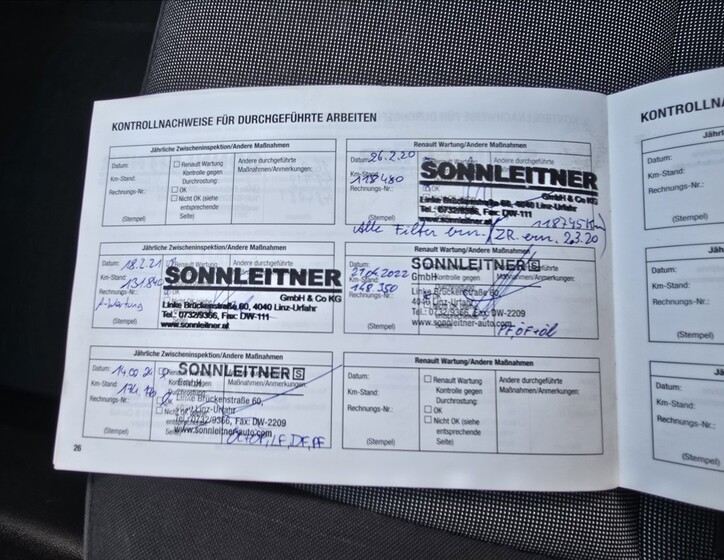 KONTROLLNACHWEISE FÜR DURCHGEFÜHRTE ARBEITEN
Jährliche Zwischeninspektion/Andere Maßnahmen
Datum:
Km-Stand:
Rechnungs-Nr.:
(Stempel)
Renault Wartung
Kontrolle gegen
Durchrostung:
OK
Nicht OK (siehe
entsprechende
Seite)
Andere durchgeführte
Maßnahmen/Anmerkungen:
Renault Wartung/Andere Maßnahmen
Datum: 26.2.20
Km-Stand: 118480
Rechnungs-Nr.:
(Stempel)
SONNLEITNER
GmbH & Co KG
Linke Brückenstraße 60, 4040 Linz-Urfahr
Tel.: 0732/9366, Fax: DW-111
www.sonnleitner.at
118745 km
Alle Filter ern. (ZR ern. 2.3.20)
Jährliche Zwischeninspektion/Andere Maßnahmen
Datum: 18.2.21
Km-Stand: 131840
Rechnungs-Nr.:
A-Wartung
SONNLEITNER
GmbH & Co KG
Linke Brückenstraße 60, 4040 Linz-Urfahr
Tel.: 0732/9366, Fax: DW-111
www.sonnleitner.at
Renault Wartung/Andere Maßnahmen
Datum:
21.04.2022
Km-Stand:
148.350
Rechnungs-Nr.:
(Stempel)
SONNLEITNER S
GmbH
Linke Brückenstraße 60,
4040 Linz-Urfahr
Tel.: 0732/9366, Fax: DW-2209
www.sonnleitner-auto.com
PF, ÖF+Öl
Jährliche Zwischeninspektion/Andere Maßnahmen
Datum:
Km-Stand:
Rechnungs-Nr.:
(Stempel)
SONNLEITNER S
GmbH
Linke Brückenstraße 60,
Linz-Urfahr
Tel.: 0732/9366, Fax: DW-2209
www.sonnleitner-auto.com
Renault Wartung/Andere Maßnahmen
Datum:
Km-Stand:
Rechnungs-Nr.:
(Stempel)
Renault Wartung
Kontrolle gegen
Durchrostung:
OK
Nicht OK (siehe
entsprechende
Seite)
Andere durchgeführte
Maßnahmen/Anmerkungen:
26
KONTROLLNA
Jährliche
Datum:
Km-Stand:
Rechnungs-Nr.:
(Stempel)
Jäh
Datum:
Km-Stand:
Rechnungs-Nr.:
(Stempel)
Jä
Datum:
Km-Stand:
Rechnungs-Nr.:
(Stempel)